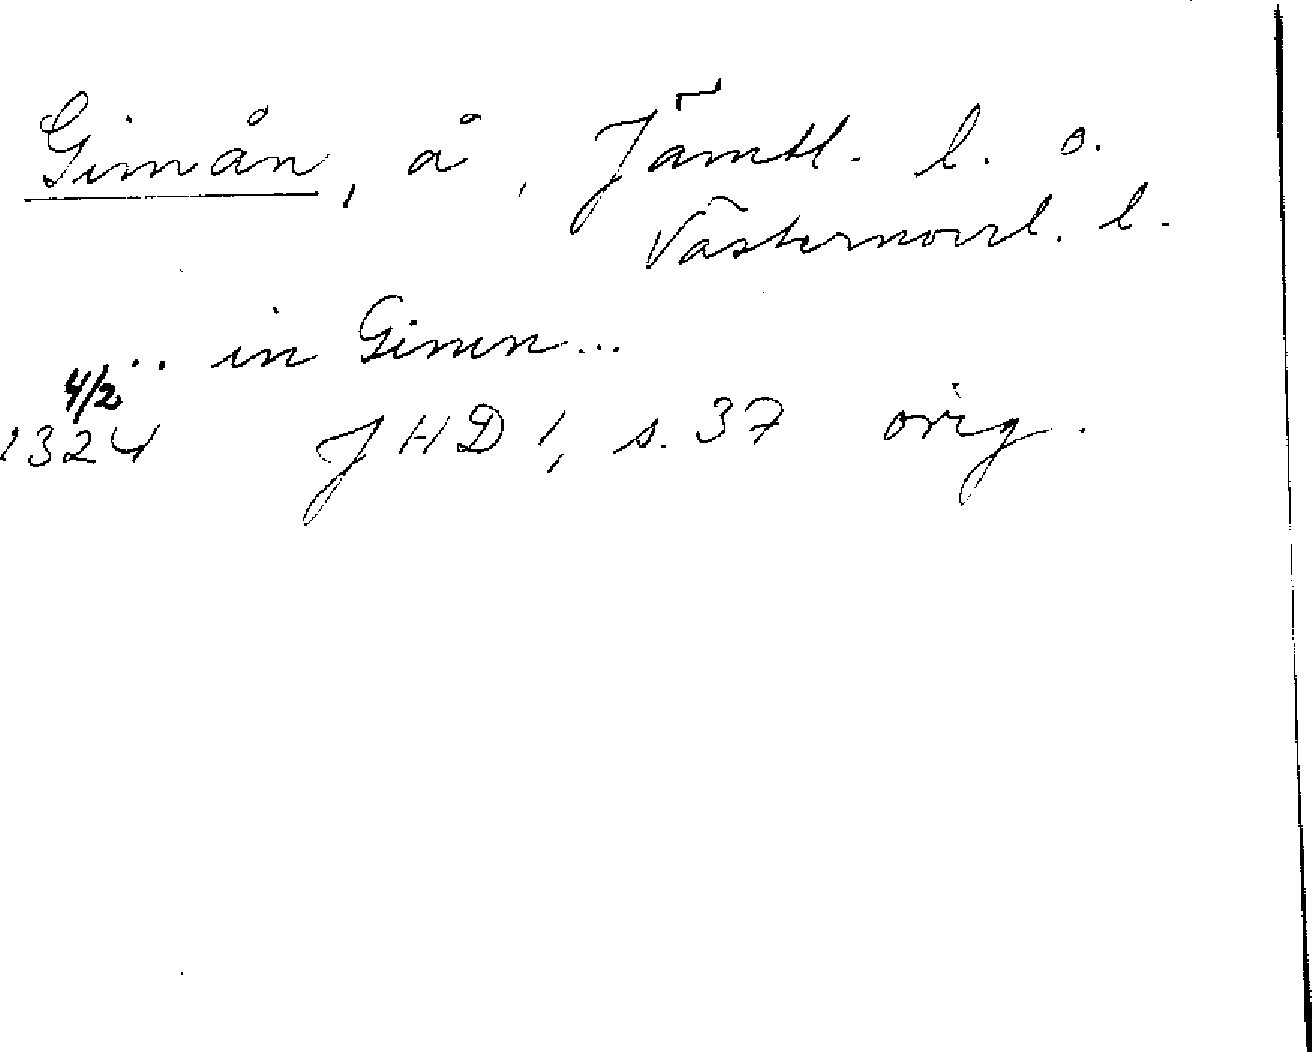 Gimån, å, Jämtl. l. o.
Västernorrl. l.
... in Gimen...
4/2
1324 JHD 1, s. 37 orig.